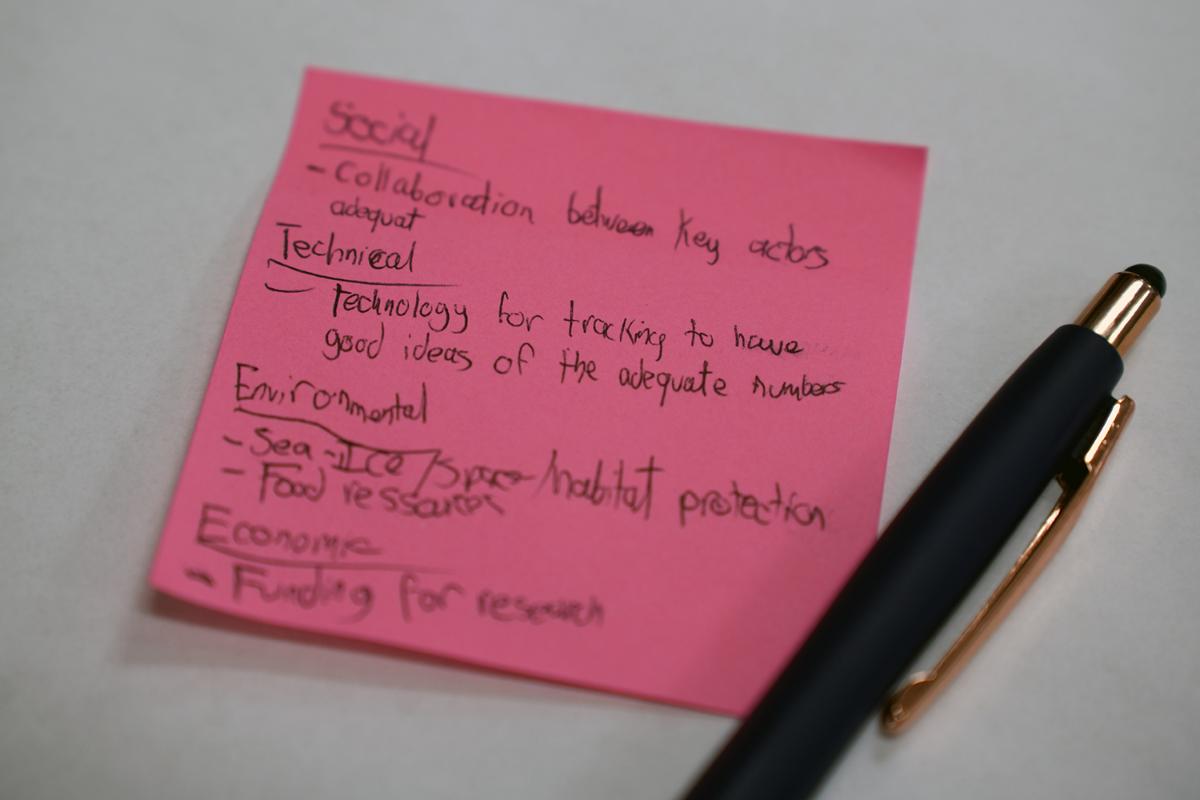 Social
- Collaboration between key actors
adequat
Technical
- Technology for tracking to have
good ideas of the adequate numbers
Environmental
- Sea-Ice/Space/habitat protection
- Food
Economic
- Funding for research